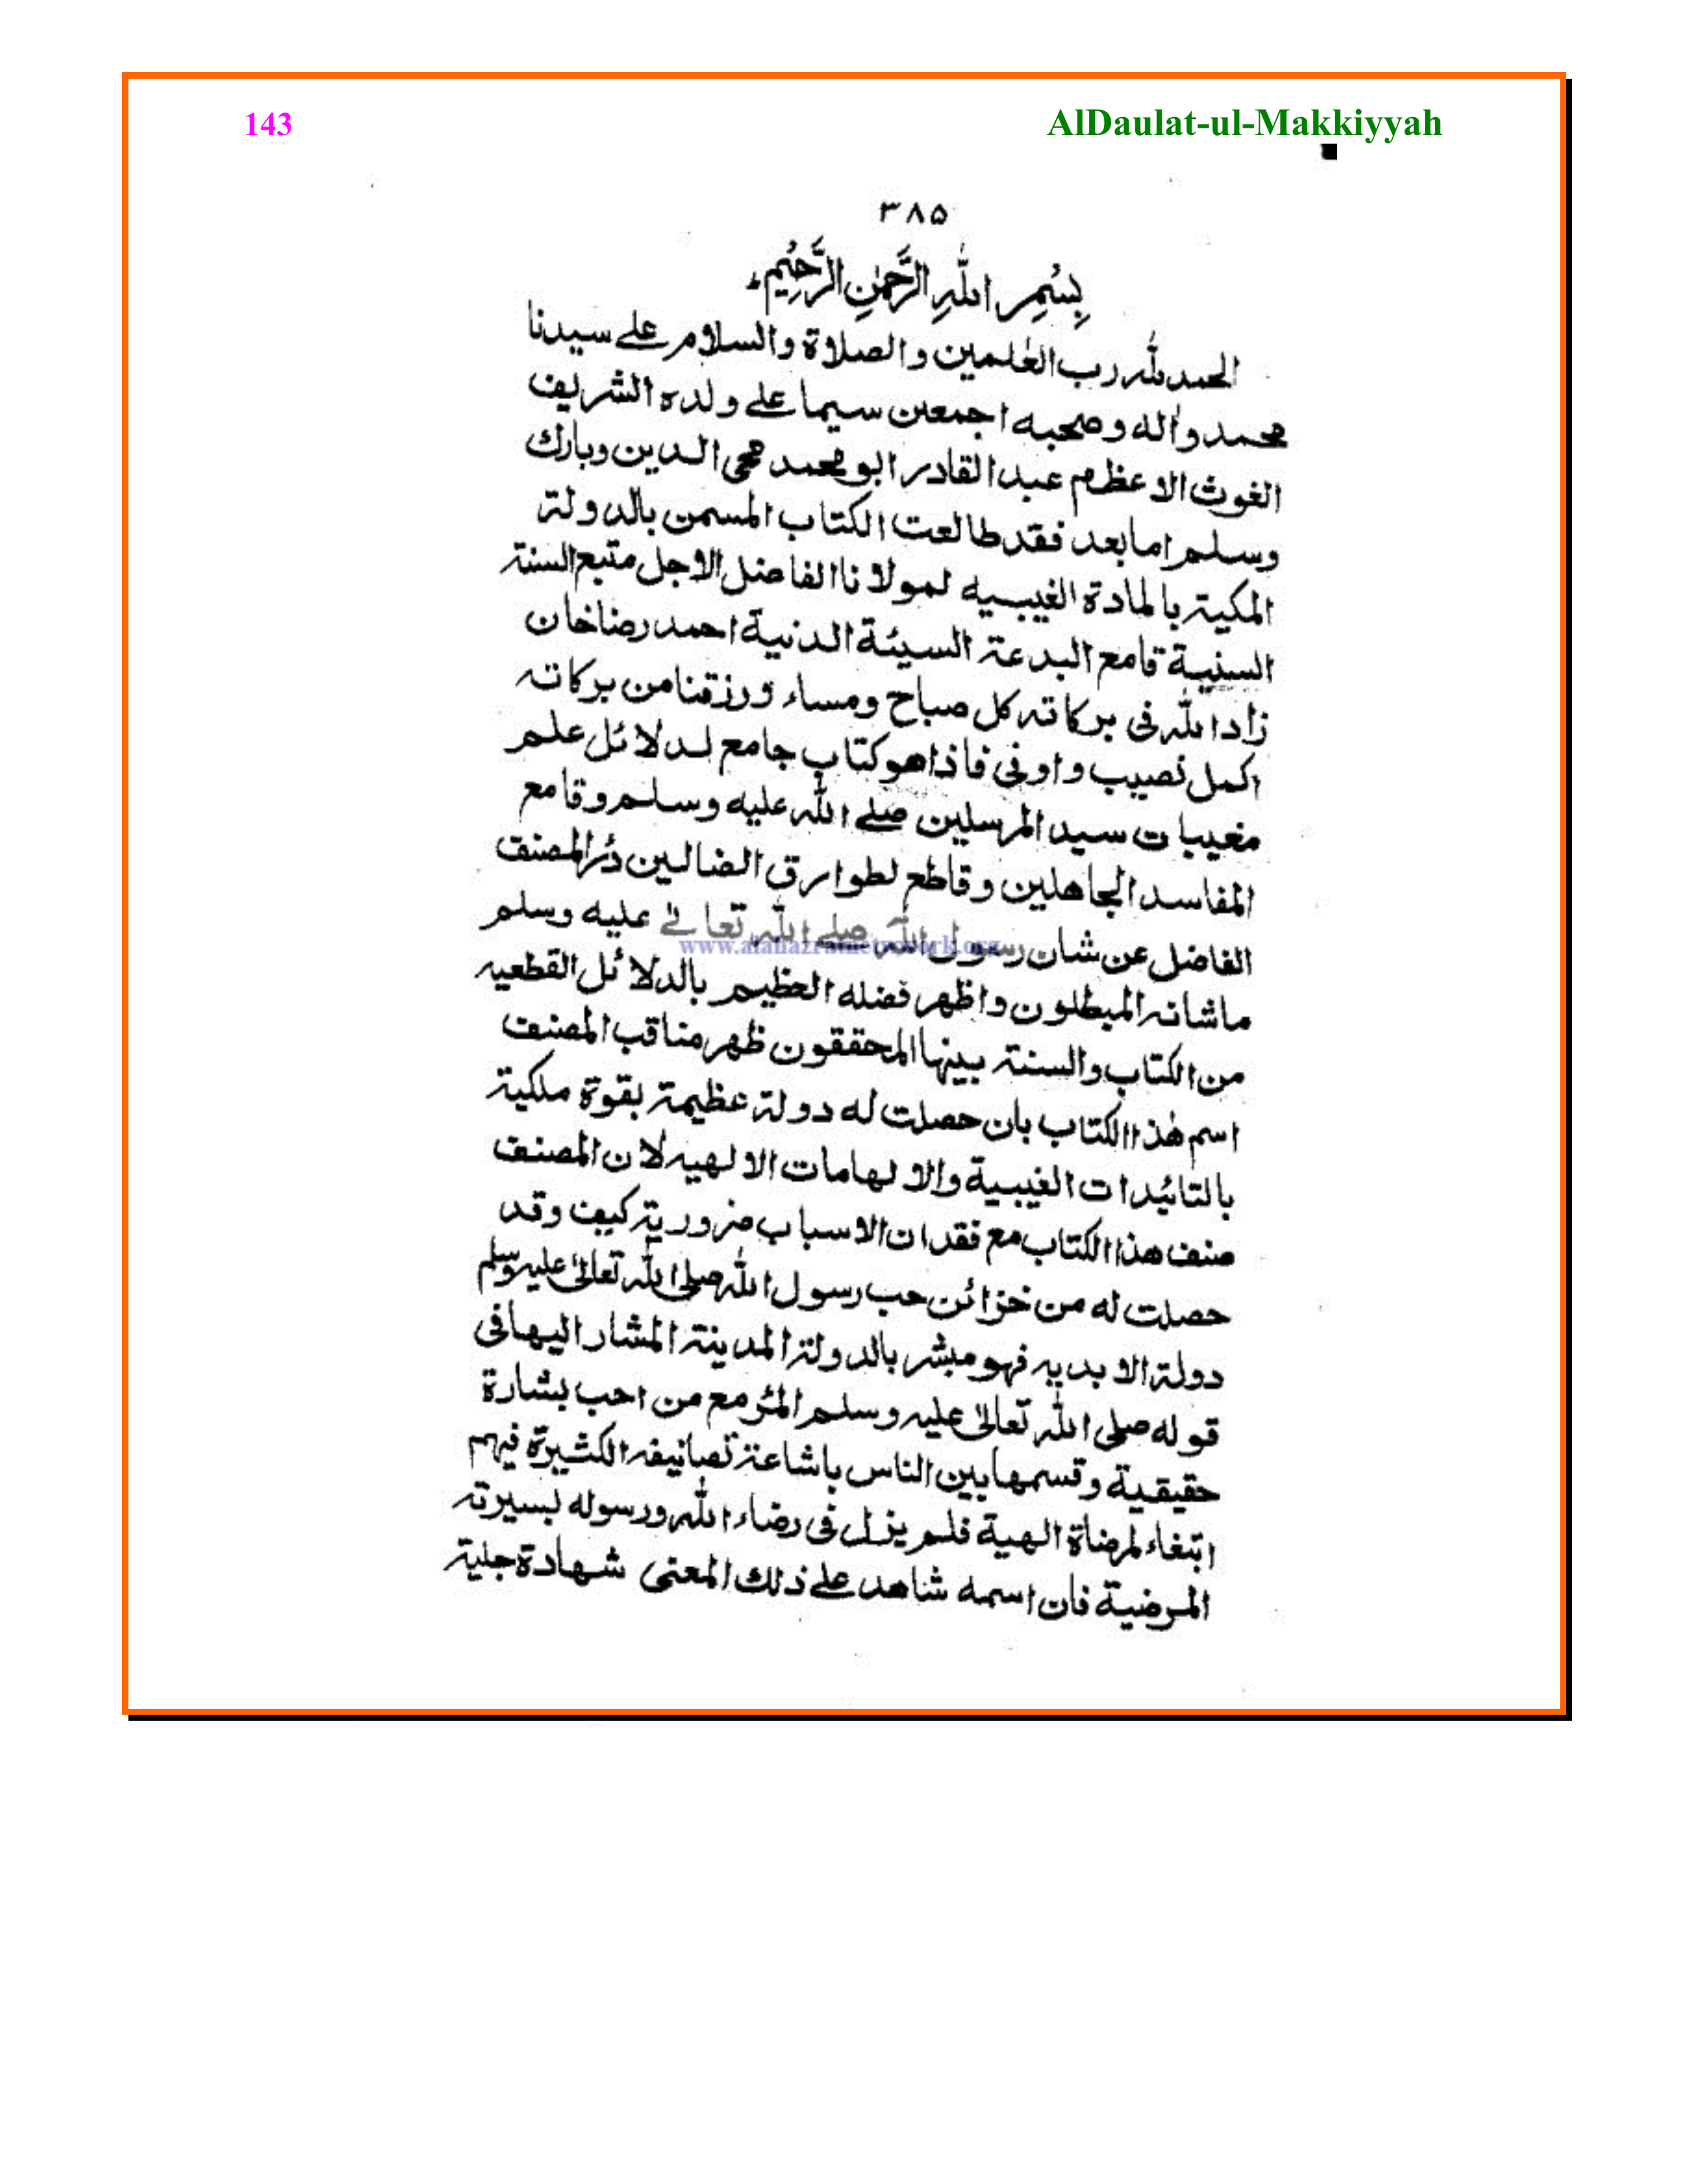 143 AlDaulat-ul-Makkiyyah
٣٨٥
بِسْمِ اللهِ الرَّحْمٰنِ الرَّحِيْمِ
الحمد لله رب العٰلمين والصلاة والسلام علے سيدنا
محمد واٰله وصحبه اجمعين سيما علے ولده الشريف
الغوث الاعظم عبد القادر ابو محمد محى الدين وبارك
وسلم اما بعد فقد طالعت الكتاب المسمن بالدولة
المكية بالمادة الغيبيه لمولانا الفاضل الاجل متبع السنة
السنية قامع البدعة السيئة الدنية احمد رضا خان
زاد الله فى بركاته كل صباح ومساء ورزقنا من بركاته
اكمل نصيب واوفى فاذا هو كتاب جامع لدلائل علم
مغيبات سيد المرسلين صلے الله عليه وسلم وقامع
المفاسد الجاهلين وقاطع لطوارق الضالين المصنف
الفاضل عن شان رسول الله صلے الله تعالےٰ عليه وسلم
ما شانه المبطلون واظهر فضله العظيم بالدلائل القطعيه
من الكتاب والسنة بينها المحققون ظهر مناقب المصنف
اسم هٰذا الكتاب بان حصلت له دولة عظيمة بقوة ملكية
بالتائيدات الغيبية والالهامات الالهيه لان المصنف
صنف هذا الكتاب مع فقدان الاسباب ضرورية كيف وقد
حصلت له من خزائن حب رسول الله صلى الله تعالىٰ عليه وسلم
دولة الابديه فهو مبشر بالدولة المدينة المشار اليها فى
قوله صلى الله تعالىٰ عليه وسلم المئر مع من احب بشارة
حقيقية وقسمها بين الناس باشاعة تصانيفه الكثيرة فيهم
ابتغاء لمرضاة الهية فلم يزل فى رضاء الله ورسوله بسيرته
المرضية فان اسمه شاهد علے ذلك المعنى شهادة جلية
www.alahazratnetwork.org